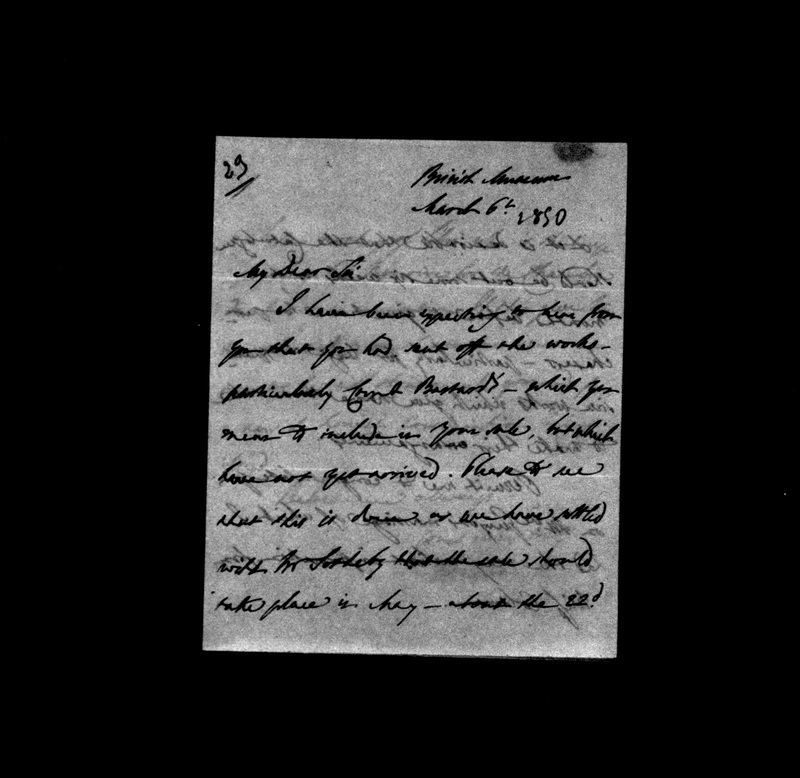 29
British Museum
March 6th 1850
My Dear Sir
I have been expecting to hear from
you that you had sent off the works -
particularly Count Bastard's - which you
mean to include in your sale, but which
have not yet arrived. Please to see
that this is done as we have settled
with Mr Sotheby that the sale should
take place in May - about the 22d